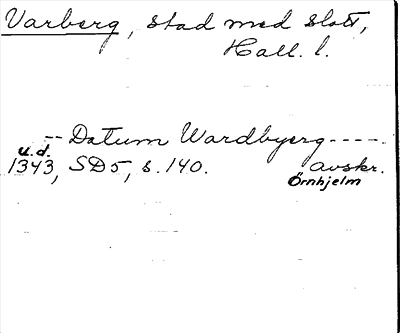 Varberg, stad med slott,
Hall. l.
-- Datum Wardbyerg -----
u.d.
1343, SD5, s. 140. avskr.
Örnhjelm